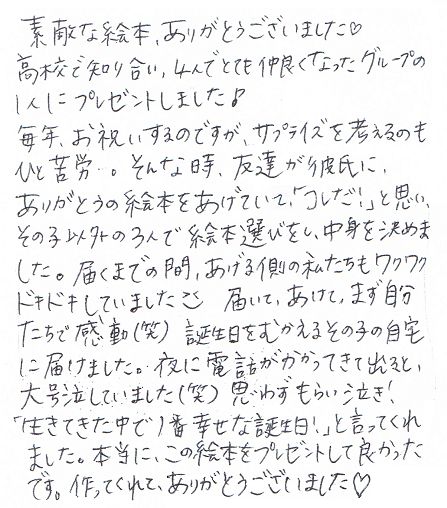 素敵な絵本、ありがとうございました♡
高校で知り合い、4人でとても仲良くなったグループの
1人にプレゼントしました♪
毎年、お祝いするのですが、サプライズを考えるのも
ひと苦労…。そんな時、友達が彼氏に、
ありがとうの絵本をあげていて、「コレだ!」と思い、
その子以外の3人で絵本選びをし、中身を決めま
した。届くまでの間、あげる側の私たちもワクワク
ドキドキしていました 届いて、あけて、まず自分
たちで感動(笑) 誕生日をむかえるその子の自宅
に届けました。夜に電話がかかってきて出ると、
大号泣していました(笑) 思わずもらい泣き!
「生きてきた中で1番幸せな誕生日!」と言ってくれ
ました。本当に、この絵本をプレゼントして良かった
です。作ってくれて、ありがとうございました♡